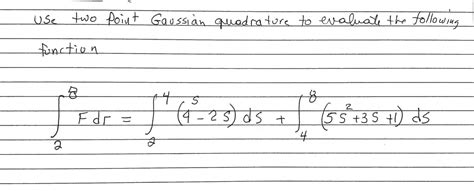 Use two Point Gaussian quadrature to evaluate the following
function
∫₂⁸ F dr = ∫₂⁴ (4^s - 2s) ds + ∫₄⁸ (5s² + 3s + 1) ds